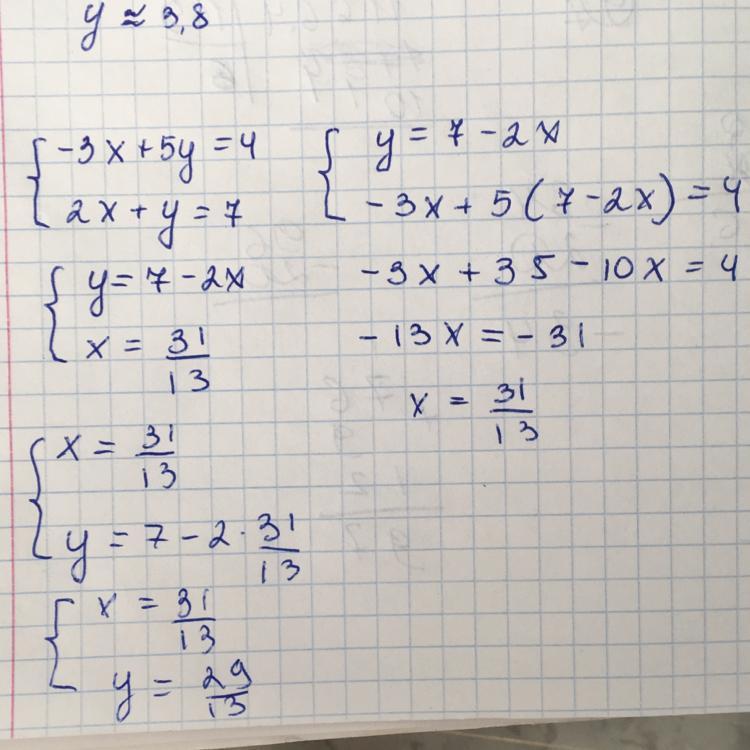 y ≈ 3,8
{ -3x + 5y = 4
2x + y = 7
{ y = 7 - 2x
-3x + 5(7 - 2x) = 4
-3x + 35 - 10x = 4
-13x = -31
x = 31/13
{ y = 7 - 2x
x = 31/13
{ x = 31/13
y = 7 - 2 · 31/13
{ x = 31/13
y = 29/13